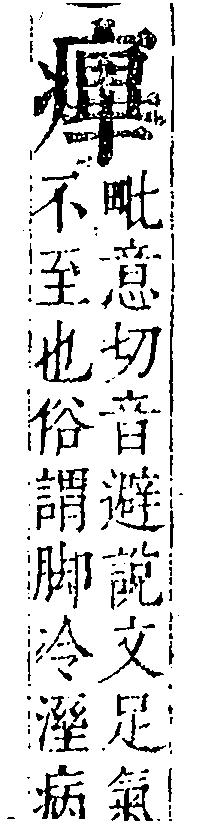 毗意切音避說文足氣
不至也俗謂脚冷溼病